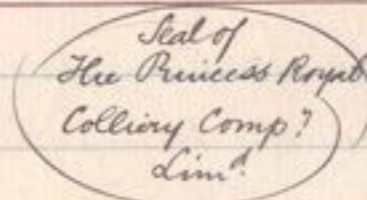 Seal of
The Princess Royal
Colliery Comp.y
Lim.d